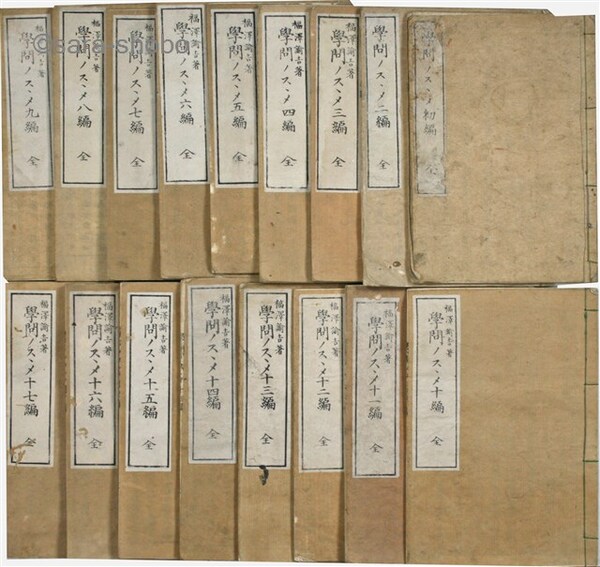 學問ノスヽメ 初編 全
學問ノスヽメ 二編 全
福澤諭吉著
學問ノスヽメ 三編 全
福澤諭吉著
學問ノスヽメ 四編 全
福澤諭吉著
學問ノスヽメ 五編 全
福澤諭吉著
學問ノスヽメ 六編 全
福澤諭吉著
學問ノスヽメ 七編 全
福澤諭吉著
學問ノスヽメ 八編 全
福澤諭吉著
學問ノスヽメ 九編 全
福澤諭吉著
學問ノスヽメ 十編 全
福澤諭吉著
學問ノスヽメ 十一編 全
福澤諭吉著
學問ノスヽメ 十二編 全
福澤諭吉著
學問ノスヽメ 十三編 全
福澤諭吉著
學問ノスヽメ 十四編 全
福澤諭吉著
學問ノスヽメ 十五編 全
福澤諭吉著
學問ノスヽメ 十六編 全
福澤諭吉著
學問ノスヽメ 十七編 全